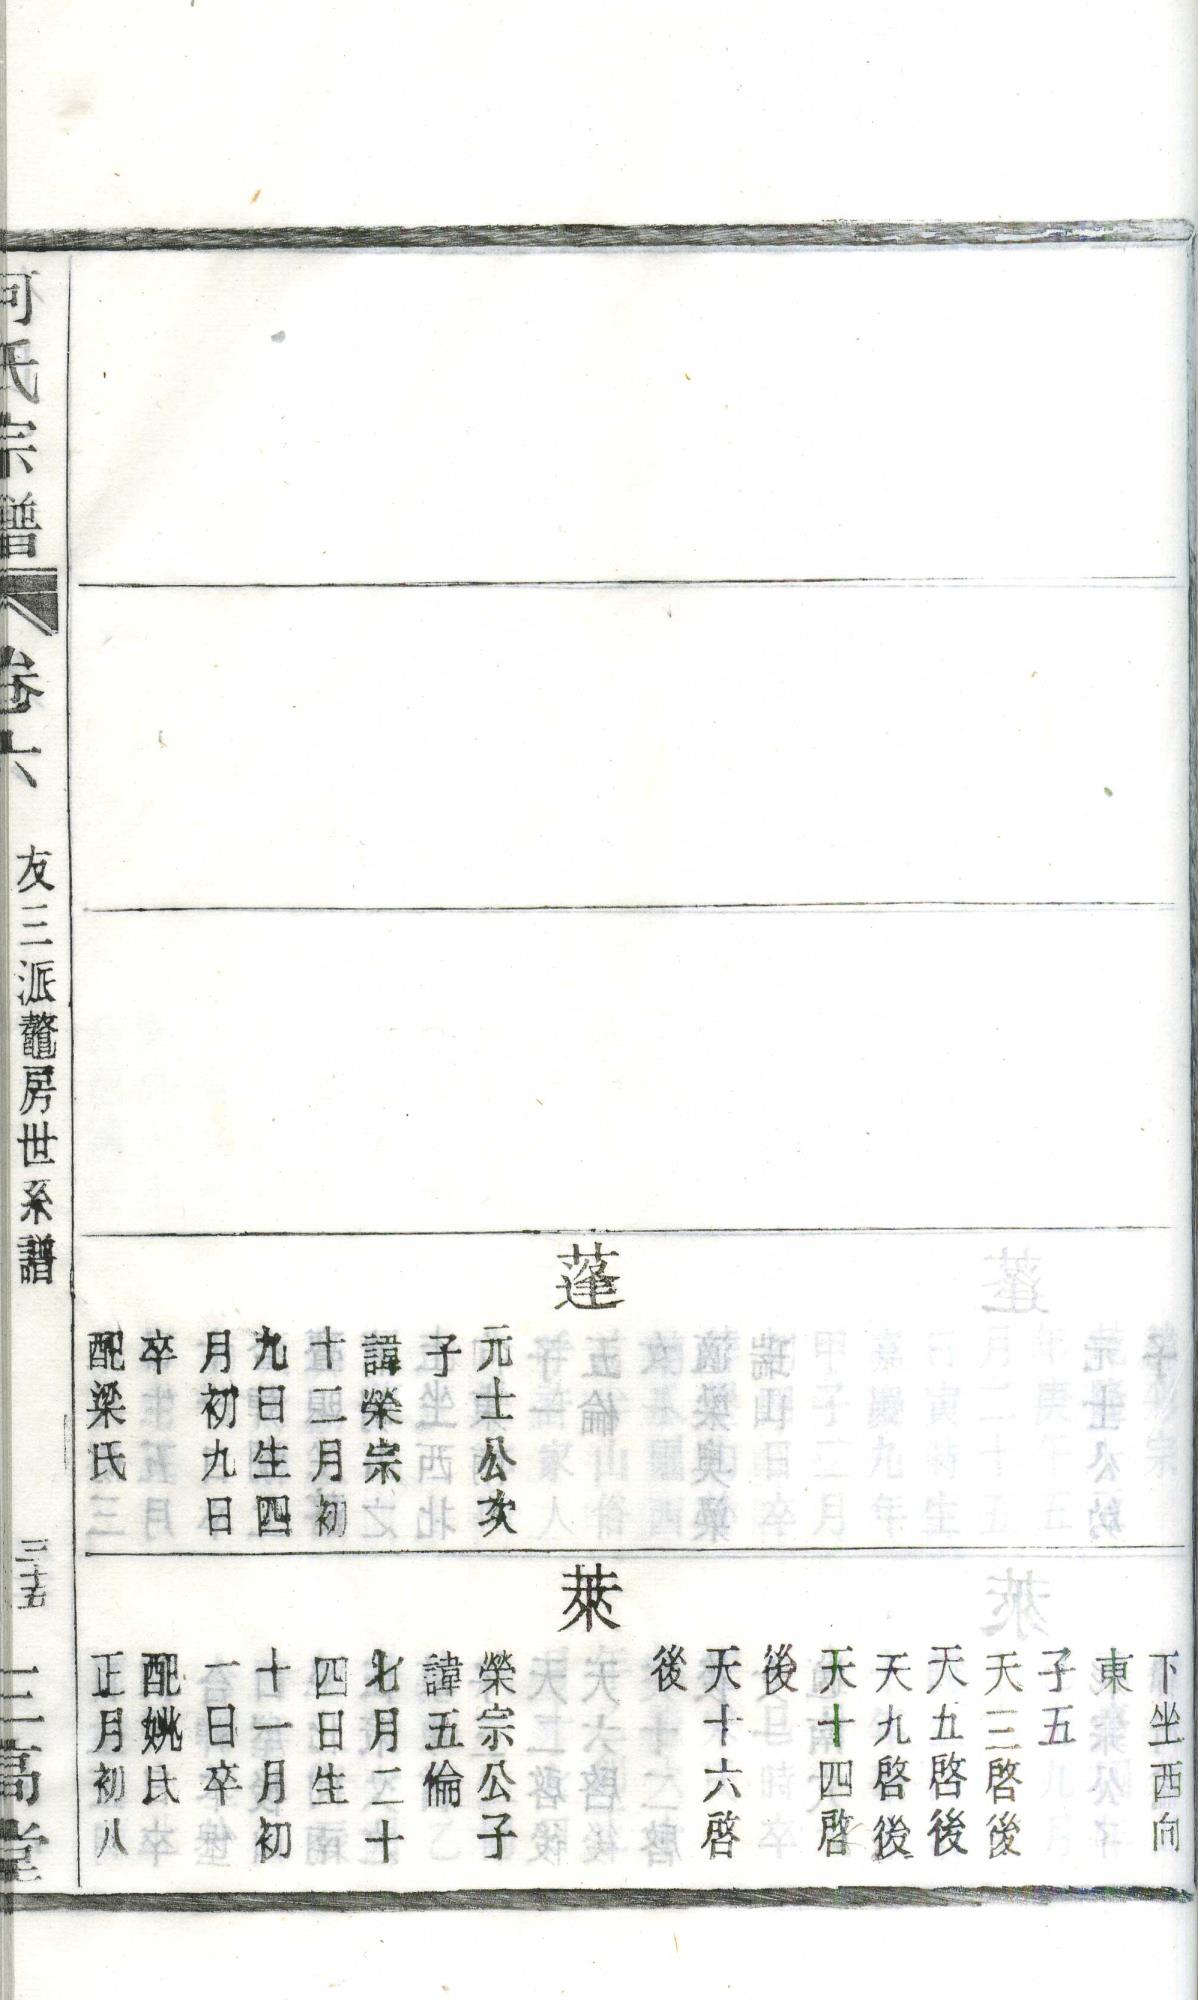 蓬
元士公次
子
諱榮宗
十二月初
九日生四
月初九日
卒
配梁氏
下坐西向
東
子五
天三啓後
天五啓後
天九啓後
天十四啓
後
天十六啓
後
萊
榮宗公子
諱五倫
七月二十
四日生
十一月初
一日卒
配姚氏
正月初八
何氏宗譜
卷六
友三派鼇房世系譜
三十五
三高堂